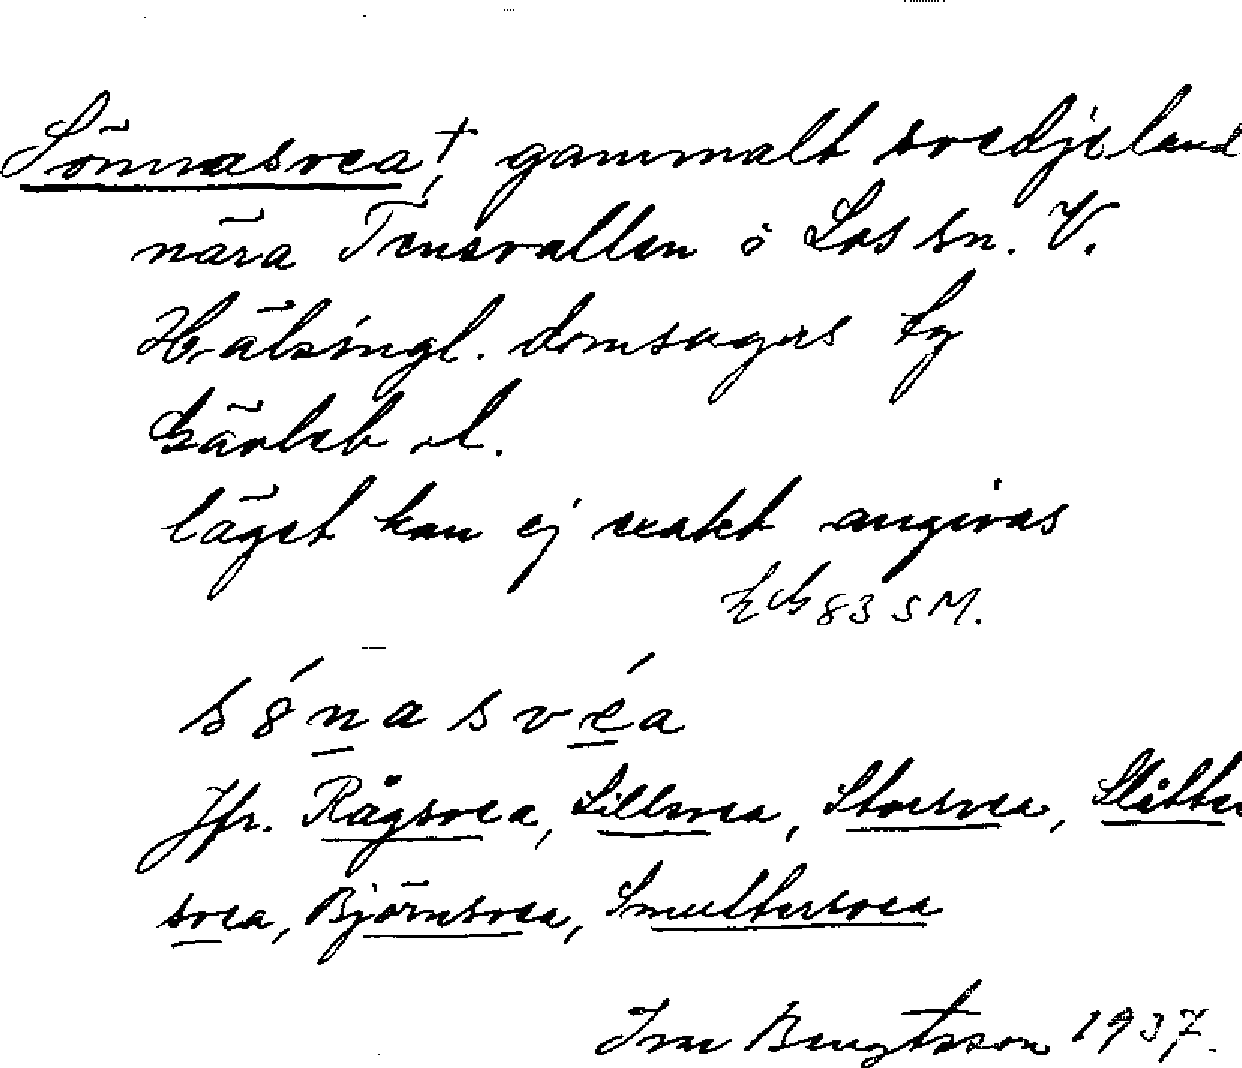 Sömnasvea†, gammalt svedjeland
nära Tensvallen i Los sn. V.
Hälsingl. domsagas tg
Gävleb. l.
läget kan ej exakt angivas
83 S M.
s ó n a s v é a
Jfr. Rågsvea, Lillsvea, Storsvea, Slåtter
svea, Björnsvea, Smuttersvea
Ivar Bengtsson 1937.